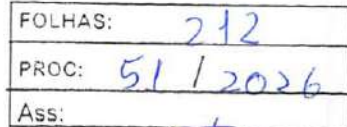 FOLHAS: 212
PROC: 51 / 2026
Ass: